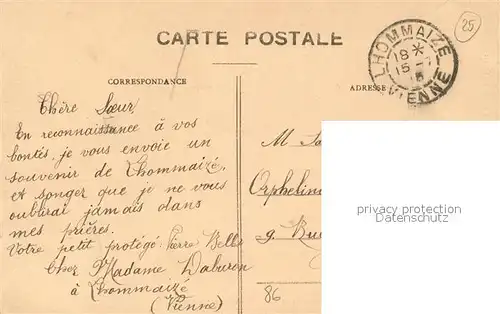 25
CARTE POSTALE
LHOMMAIZE
18 *
15 - 7
15
VIENNE
CORRESPONDANCE
ADRESSE
Chère Sœur,
En reconnaisstance à vos
bontés, je vous envoie un
souvenir de Lhommaizé,
et songer que je ne vous
oublirai jamais dans
mes prières.
Votre petit protégé: Pierre Belle
Chez Madame Daburon
à Lhommaizé
(Vienne)
M
Orphelin
9. Rue
86
privacy protection
Datenschutz